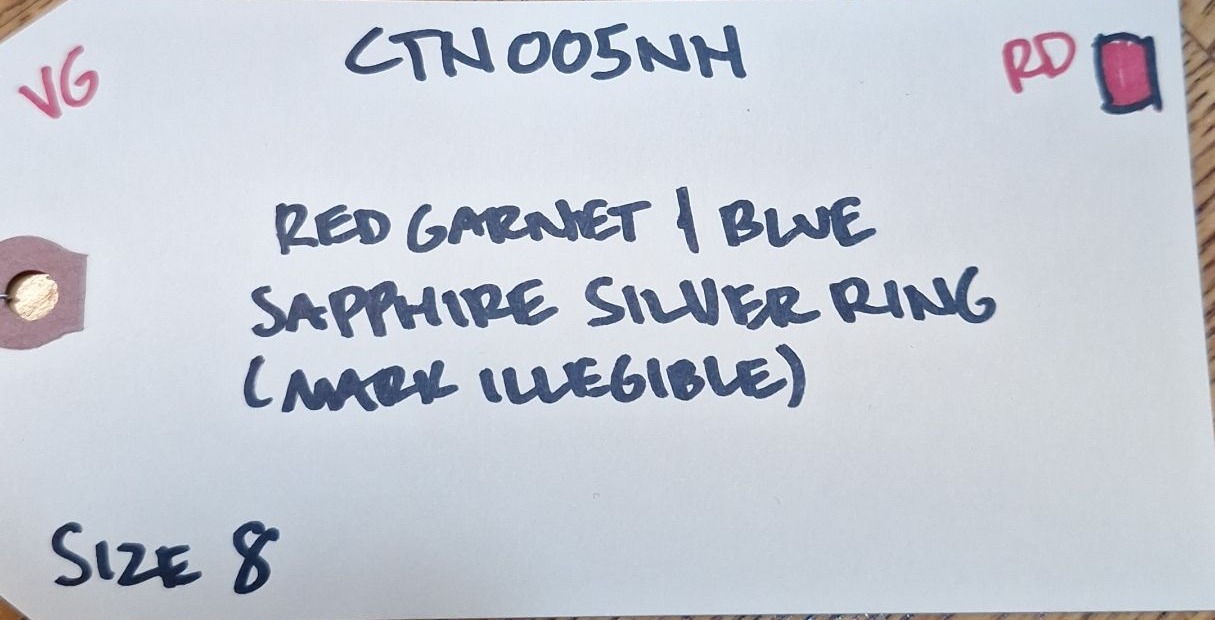 VG
CTN005NH
RD
RED GARNET & BLUE
SAPPHIRE SILVER RING
(MARK ILLEGIBLE)
SIZE 8